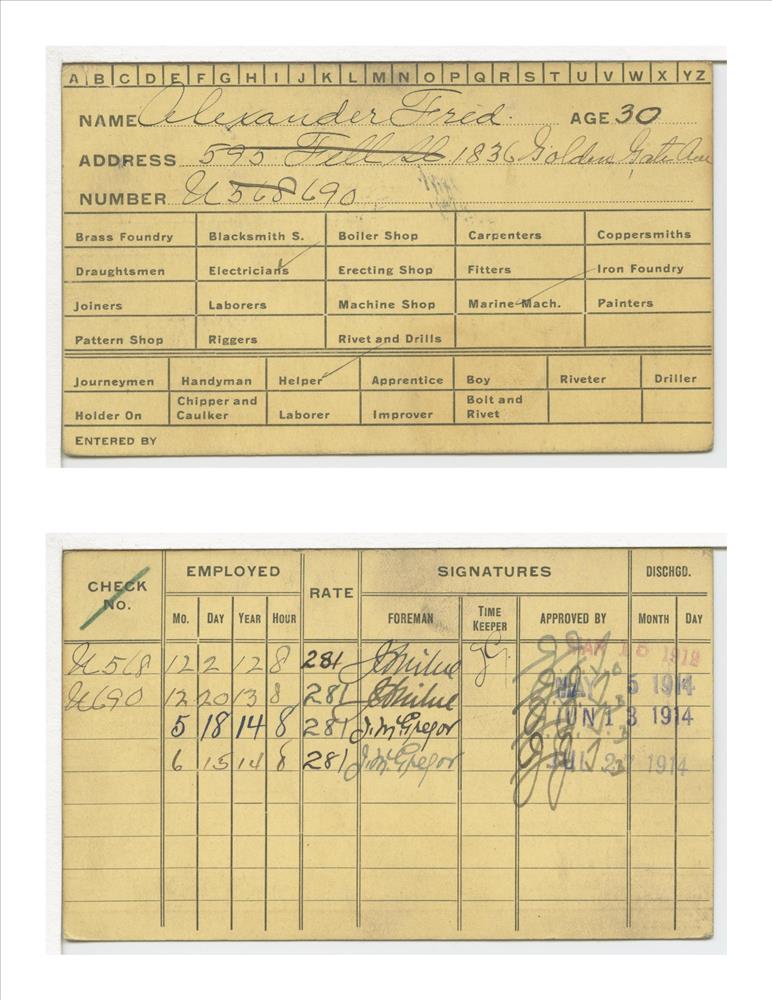 A B C D E F G H I J K L M N O P Q R S T U V W X YZ
NAME Alexander Fred. AGE 30
ADDRESS 595 Fell St 1836 Golden Gate Ave
NUMBER U 568 690
Brass Foundry Blacksmith S. Boiler Shop Carpenters Coppersmiths
Draughtsmen Electricians Erecting Shop Fitters Iron Foundry
Joiners Laborers Machine Shop Marine Mach. Painters
Pattern Shop Riggers Rivet and Drills
Journeymen Handyman Helper Apprentice Boy Riveter Driller
Holder On Chipper and Caulker Laborer Improver Bolt and Rivet
ENTERED BY
CHECK NO. EMPLOYED RATE SIGNATURES DISCHGD.
MO. DAY YEAR HOUR FOREMAN TIME KEEPER APPROVED BY MONTH DAY
U 568 12 2 12 8 281
U 690 12 20 13 8 281 MAY 5 1914
5 18 14 8 281 J. McGregor JUN 13 1914
6 15 14 8 281 J. McGregor 1914